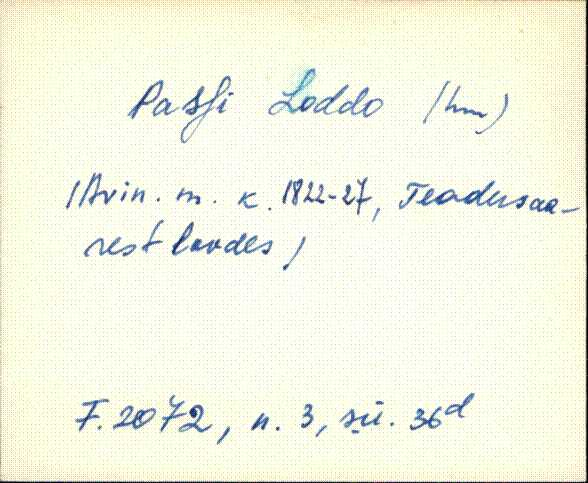 Passi Loddo (hm)
/Avin. m. k. 1822-27, Teadusaa-
rest loodes/
F. 2072, n. 3, sü. 36d